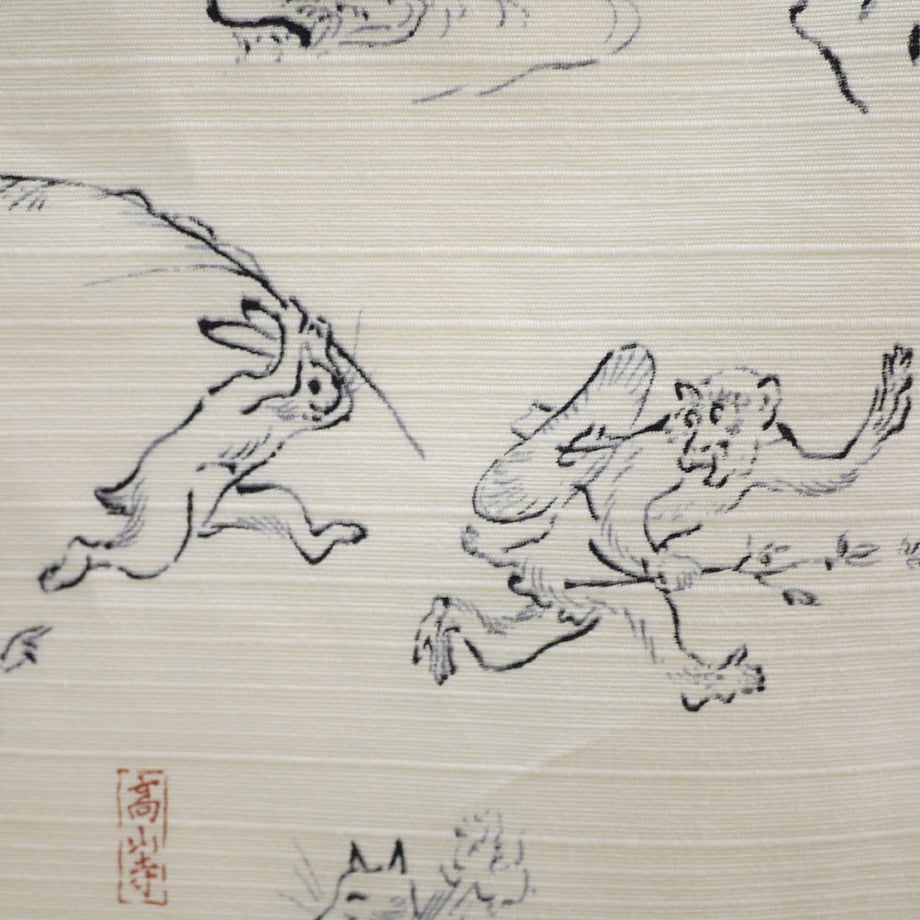 高山寺